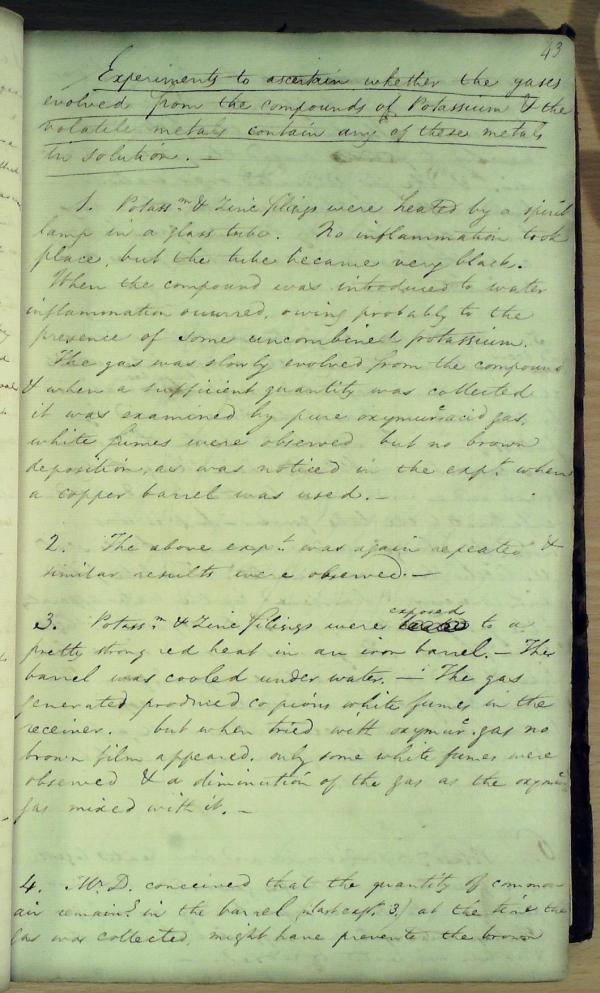 43
Experiments to ascertain whether the gases
evolved from the compounds of Potassium & the
volatile metals contain any of those metals
in solution. —
1. Potass.m & Zinc filings were heated by a spirit
lamp in a glass tube. No inflammation took
place, but the tube became very black.
When the compound was introduced to water
inflammation occurred, owing probably to the
presence of some uncombined potassium.
The gas was slowly evolved from the compound
& when a sufficient quantity was collected
it was examined by pure oxymur.c acid gas,
white fumes were observed but no brown
deposition, as was noticed in the exp.t when
a copper barrel was used. —
2. The above exp.t was again repeated &
similar results were observed. —
3. Potass.m & Zinc filings were exposed to a
pretty strong red heat in an iron barrel. — The
barrel was cooled under water. — The gas
generated produced copious white fumes in the
receiver. but when tried with oxymur.c gas no
brown film appeared. only some white fumes were
observed & a diminution of the gas as the oxymur.c
gas mixed with it. —
4. Mr. D. conceived that the quantity of common
air remain.g in the barrel (last exp.t 3) at the time the
gas was collected, might have prevented the brown